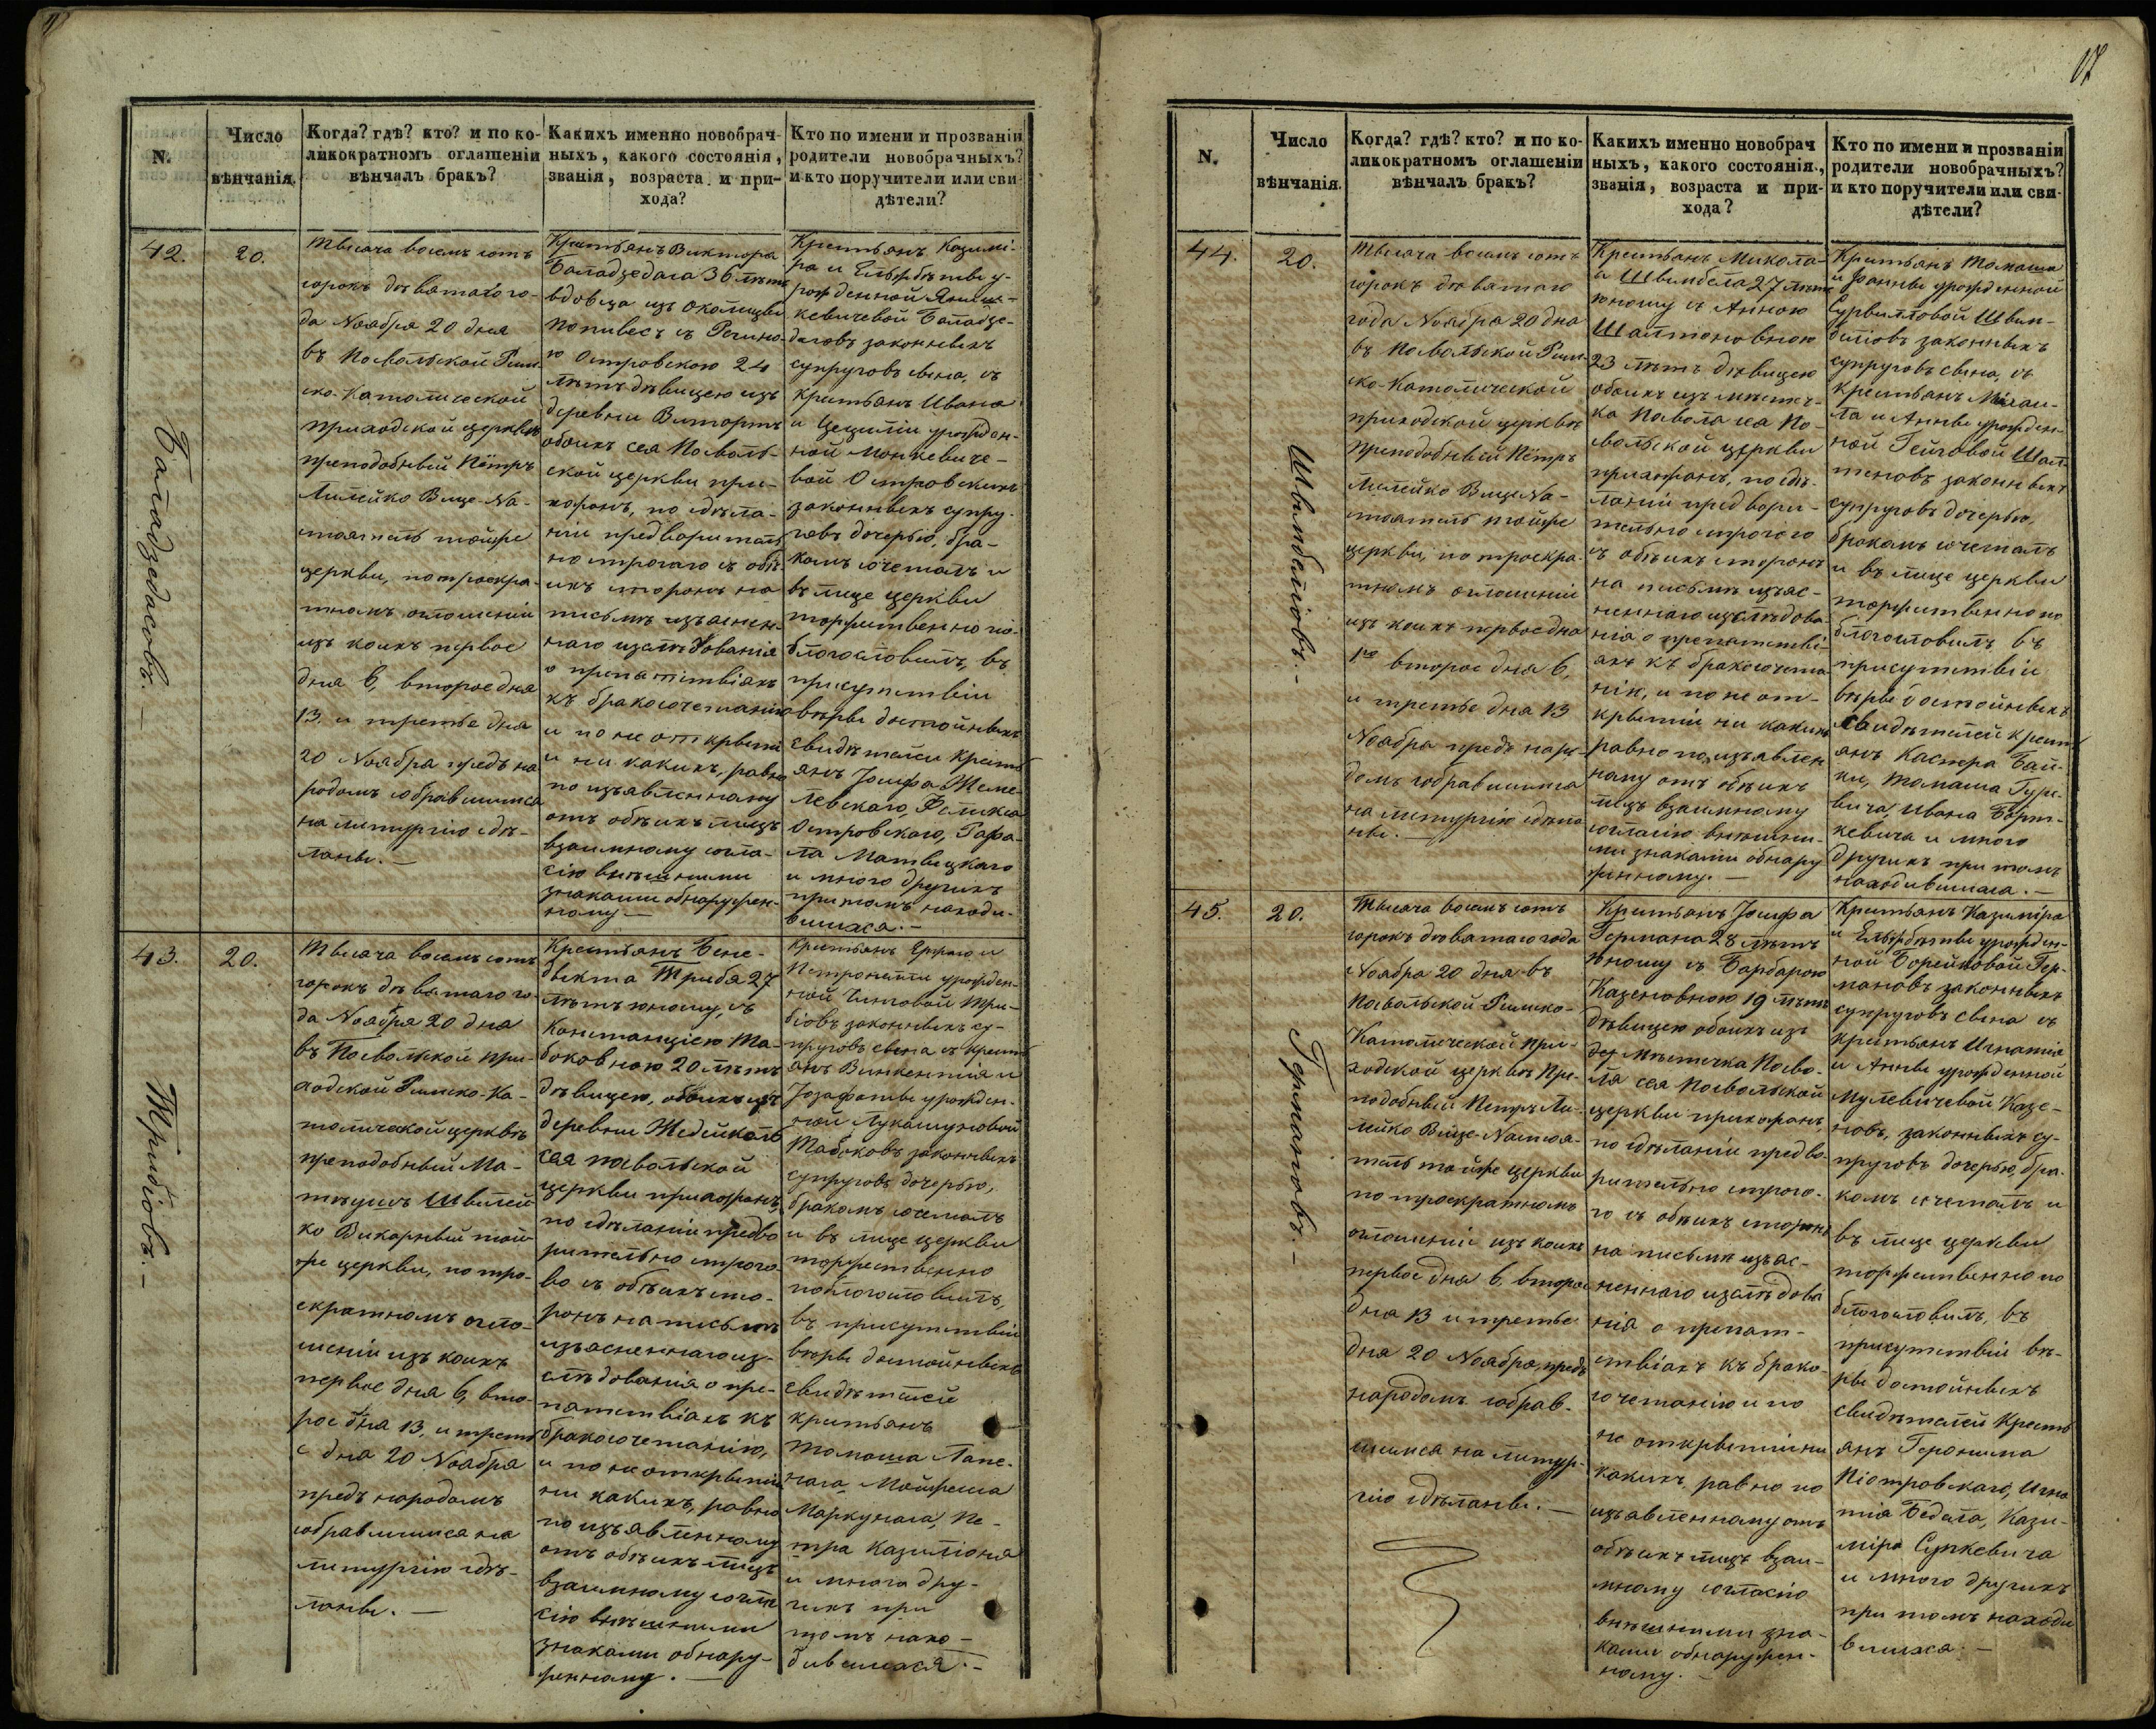 17
N.
Число
вѣнчанія.
Когда? гдѣ? кто? и по ко-
ликократномъ оглашеніи
вѣнчалъ бракъ?
Какихъ именно новобрач-
ныхъ, какого состоянія,
званія, возраста и при-
хода?
Кто по имени и прозваніи
родители новобрачныхъ?
и кто поручители или сви-
дѣтели?
42.
20.
Баладзедасовъ. —
Тысяча восемъ сотъ
сорокъ девятаго го-
да Ноября 20 дня
въ Посвольской Рим-
ско-Католической
приходской церквѣ
преподобный Пётръ
Лилейко Вице-На-
стоятель тойже
церкви, по троекра-
тномъ оглошеніи
изъ коихъ первое
дня 6, второе дня
13. и третье дня
20 Ноября предъ на
родомъ собравшимся
на литургію сдѣ-
ланы. —
Крестьянъ Виктора
Баладзедаса 36 лѣтъ
вдовца изъ околицы
Попивесъ съ Регино-
ю Островскою 24
лѣтъ дѣвицею изъ
деревни Витортъ
обоихъ сея Посволь-
ской церкви при-
хожанъ, по сдѣла-
ніи предваритель
но строгаго съ обѣ
ихъ сторонъ на
письмѣ изъяснен-
наго изслѣдованія
о препятствіяхъ
къ бракосочетанію
и по не открытіи
и ни какихъ, равно
по изъявленному
отъ обѣихъ лицъ
взаимному согла-
сію внѣшними
знаками обнаружен-
ному —
Крестьянъ Казимі-
ра и Ельжбѣты у-
рожденной Яниш-
кевичевой Баладзе-
дасовъ законныхъ
супруговъ сына, съ
крестьянъ Ивана
и Цециліи урожден-
ной Монкевиче-
вой Островскихъ
законныхъ супру-
говъ дочерью, бра-
комъ сочеталъ и
въ лице церкви
торжественно по-
благословилъ, въ
присутствіи
вѣры достойныхъ
свидѣтелей Кресть
янъ Іосифа Жеме-
левскаго, Феликса
Островского, Рафа-
ла Матвицкаго
и много другихъ
при томъ находи-
вшихся. —
43.
20.
Трибіовъ. —
Тысяча восемъ сотъ
сорокъ девятаго го-
да Ноября 20 дня
въ Посвольской при-
ходской Римско-Ка-
толической церквѣ
преподобный Ма-
теушъ Швилей
ко Викарный той-
же церкви, по тро-
екратномъ огло-
шеніи изъ коихъ
первое дня 6, вто-
рое дня 13, и треть
е дня 20 Ноября
предъ народомъ
собравшимся на
литургію сдѣ-
ланы. —
Крестьянъ Бене-
дыкта Триба 27
лѣтъ юному, съ
Констанціею Та-
боковною 20 лѣтъ
дѣвицею, обоихъ изъ
деревни Жедейколь
сея посвольской
церкви прихожанъ,
по сдѣланіи предва
рительно строга-
во съ обѣихъ сто-
ронъ на письмѣ
изъясненнаго из-
слѣдованія о пре-
пятствіяхъ къ
бракосочетанію,
и по не открытіи
ни какихъ, равно
по изъявленному
отъ обѣихъ лицъ
взаимному согла
сію внѣшними
знаками обнару-
женному. —
Крестьянъ Ержаго и
Петронелли урожден-
ной Чинговой Три-
біовъ законныхъ су-
пруговъ сына съ кресть
янъ Викентія и
Іозафаты урожден-
ной Лукашуновой
Табоковъ законныхъ
супруговъ дочерью,
бракомъ сочеталъ
и въ лице церкви
торжественно
поблогословилъ,
въ присутствіи
вѣры достойныхъ
свидѣтелей
крестьянъ
Томаша Лапе-
наса, Мойжеша
Маркунаса, Пе-
тра Казиліона
и много дру-
гихъ при
томъ нахо-
дившихся. —
N.
Число
вѣнчанія.
Когда? гдѣ? кто? и по ко-
ликократномъ оглашеніи
вѣнчалъ бракъ?
Какихъ именно новобрач
ныхъ, какого состоянія,
званія, возраста и при-
хода?
Кто по имени и прозваніи
родители новобрачныхъ?
и кто поручители или сви-
дѣтели?
44.
20.
Швимбеліовъ. —
Тысяча восемъ сотъ
сорокъ девятаго
года Ноября 20 дня
въ Посвольской Рим-
ско-Католической
приходской церквѣ
преподобный Пётръ
Лилейко Вице На-
стоятель тойже
церкви, по троекра-
тномъ оглошеніи
изъ коихъ первое дня
1го второе дня 6,
и третье дня 13
Ноября предъ наро-
домъ собравшимся
на литургію сдѣла
ны. —
Крестьянъ Микола-
я Швимбела 27 лѣтъ
юному съ Анною
Шалтоновною
23 лѣтъ дѣвицею
обоихъ изъ мѣстеч-
ка Посволя сея По-
свольской церкви
прихожанъ, по сдѣ-
ланіи предвари-
тельно строгого
съ обѣихъ сторонъ
на письмѣ изъяс-
неннаго изслѣдова
нія о препятстві-
яхъ къ бракосочета
нію, и по не от-
крытіи ни какихъ
равно по изъявлен
ному отъ обѣихъ
лицъ взаимному
согласію внѣшни-
ми знаками обнару
женному. —
Крестьянъ Томаша
и Іоанны урожденной
Сурвилловой Швим-
беліовъ законныхъ
супруговъ сына, съ
крестьянъ Михаи-
ла и Анны урожден-
ной Гейговой Шал-
теновъ законныхъ
супруговъ дочерью,
бракомъ сочеталъ
и въ лице церкви
торжественно по
благословилъ въ
присутствіи
вѣры достойныхъ
свидѣтелей кресть
янъ Каспера Бай-
ки, Томаша Гуре-
вича, Ивана Борт-
кевича и много
другихъ при томъ
находившихся. —
45.
20.
Германовъ. —
Тысяча восемъ сотъ
сорокъ девятаго года
Ноября 20 дня въ
Посвольской Римско-
Католической при-
ходской церквѣ Пре-
подобный Петръ Ли-
лейко Вице-Настоя-
тель тойже церкви
по троекратномъ
оглошеніи изъ коихъ
первое дня 6, второе
дня 13 и третье
дня 20 Ноября, предъ
народомъ собрав-
шимся на литур-
гію сдѣланы. —
Крестьянъ Іосифа
Германа 28 лѣтъ
юному съ Барбарою
Казеновною 19 лѣтъ
дѣвицею обоихъ изъ
дер мѣстечка Посво-
ля сея Посвольской
церкви прихожанъ
по сдѣланіи предва-
рительно строго-
го съ обѣихъ сторонъ
на письмѣ изъяс-
неннаго изслѣдова
нія о препят-
ствіяхъ къ брако-
сочетанію и по
не открытіи ни
какихъ, равно по
изъявленному отъ
обѣихъ лицъ взаи-
мному согласію
внѣшними зна-
ками обнаружен-
ному. —
Крестьянъ Казиміра
и Ельжбѣты урожден-
ной Борейковой Гер-
мановъ законныхъ
супруговъ сына съ
крестьянъ Игнатія
и Анны урожденной
Мулевичевой Казе-
новъ, законныхъ су-
пруговъ дочерью, бра-
комъ сочеталъ и
въ лице церкви
торжественно по
благословилъ, въ
присутствіи вѣ-
ры достойныхъ
свидѣтелей Кресть
янъ Геронима
Піотровскаго, Игна
тія Бедала, Кази-
міра Сункевича
и много другихъ
при томъ находи
вшихся. —